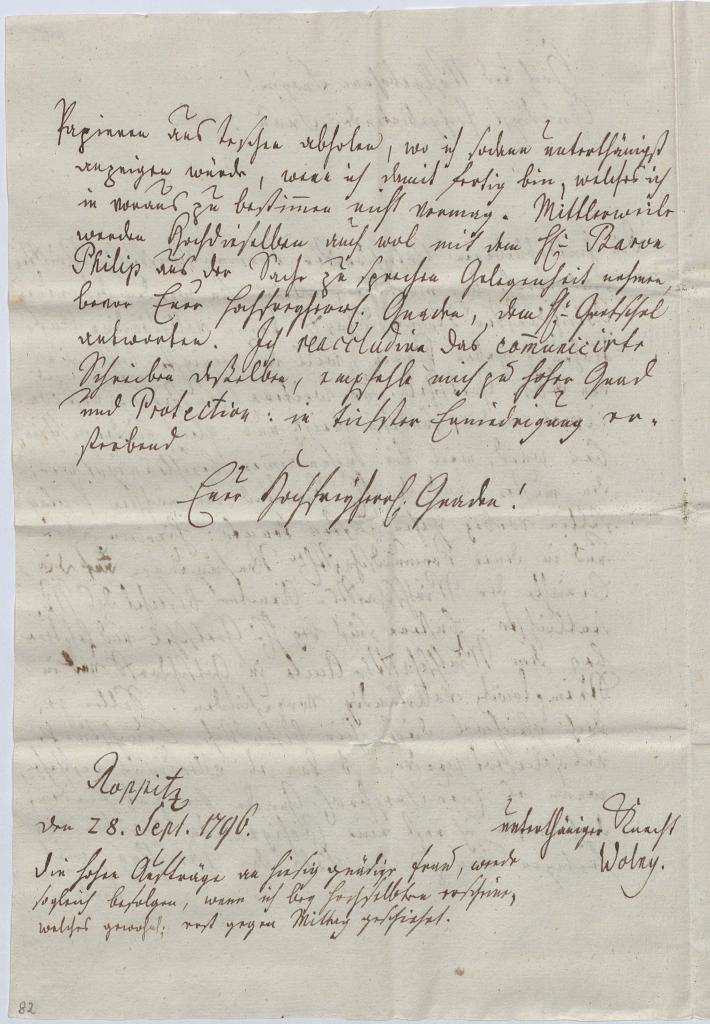 Papieren aus Teschen abholen, wo ich sodann unterthänigst
anzeigen würde, wenn ich damit fertig bin, welches ich
in voraus zu bestimmen nicht vermag. Mittlerweile
werden Hochdieselben auch wol mit dem H. Baron
Philip aus der Sache zu sprechen Gelegenheit nehmen,
bevor Euer hochfreyherrl. Gnaden, dem H. Gretschel
antworten. Ich reaccludire das com̄unicirte
Schreiben desselben, empfehle mich zu hoher Gnad
und Protection: in tiefster Erniedrigung er-
sterbend
Euer Hochfreyherrl. Gnaden!
Roppitz
den 28. Sept. 1796.
unterthäniger Knecht
Wolny.
Die hohen Aufträge an hiesig gnädige Frau, werde
sogleich befolgen, wenn ich bey Hochselbten erscheine,
welches gewöhnl: erst gegen Mittag geschiehet.
82